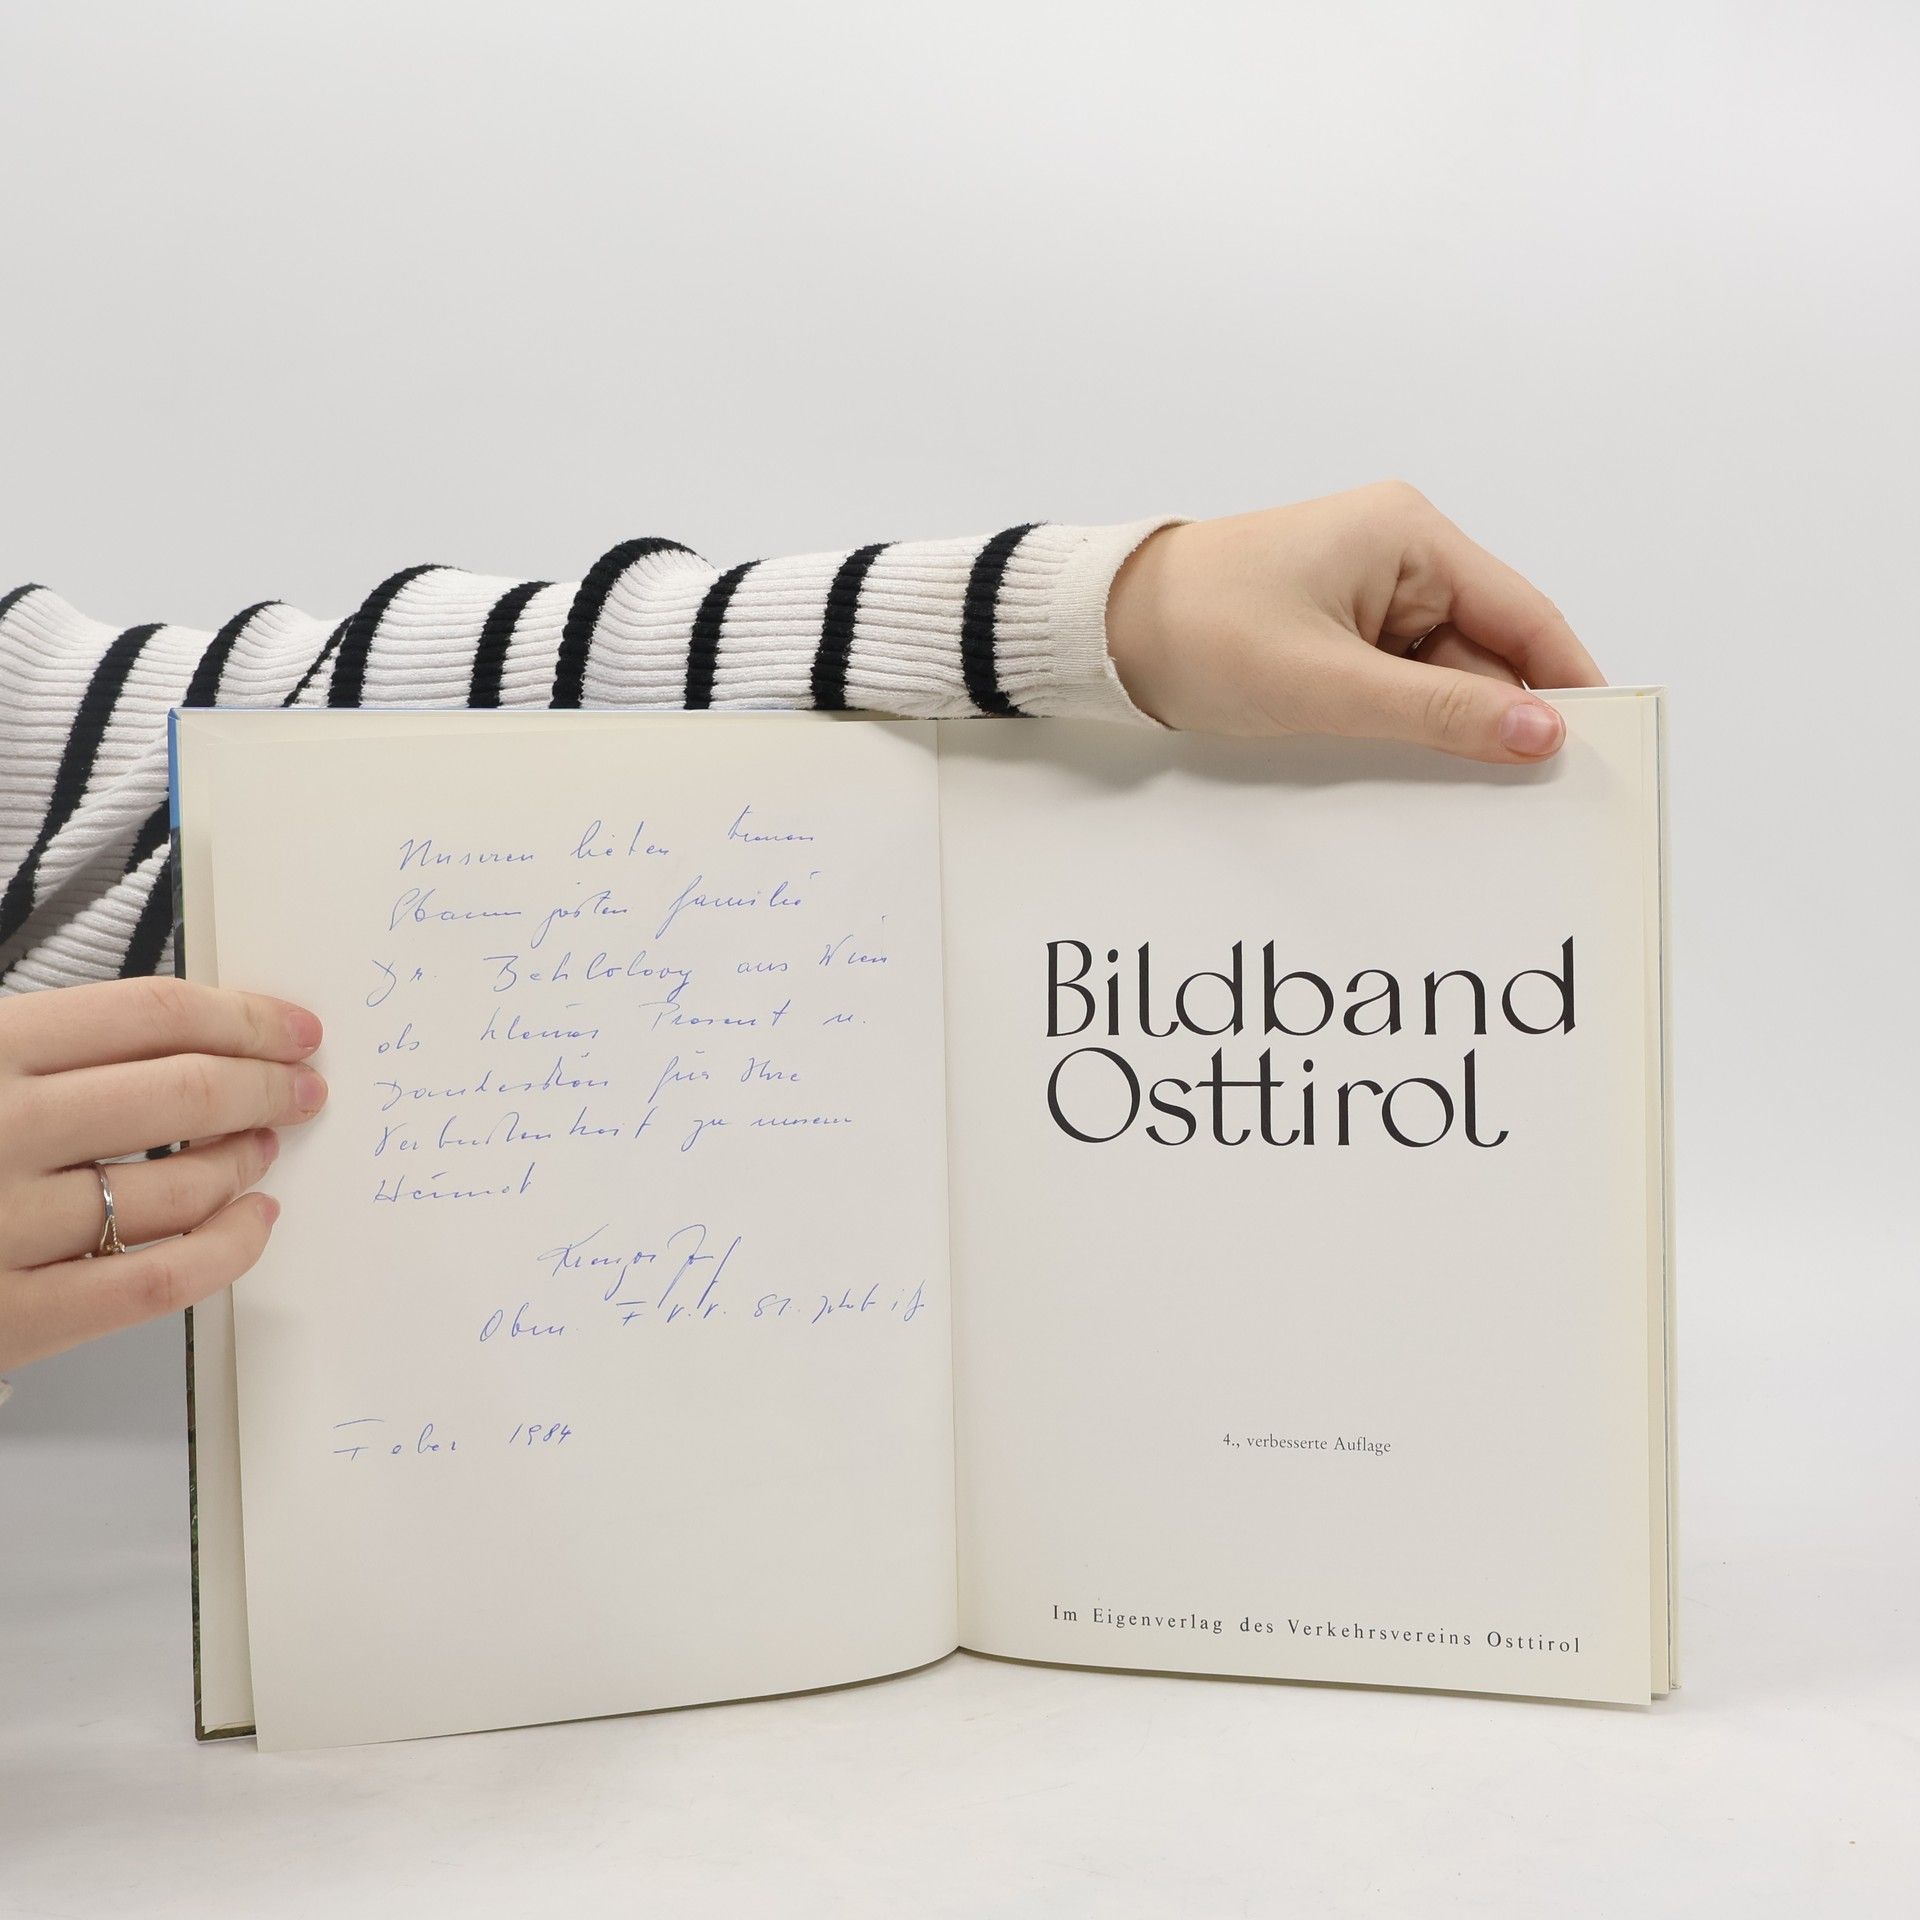 Unseren lieben treuen
Stammgästen Familie
Dr. aus Wien
als kleines Präsent u.
Dankeschön für Ihre
Verbundenheit zu unserer
Heimat
Josef
Obm. F.V.V. St. i/
Feber 1984
Bildband
Osttirol
4., verbesserte Auflage
Im Eigenverlag des Verkehrsvereins Osttirol